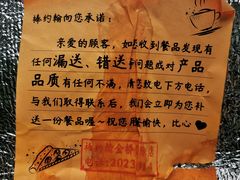 捧约翰向您承诺:
亲爱的顾客,如您收到餐品发现有
任何漏送、错送等问题或对产品
品质有任何不满,请您致电下方电话,
与我们取得联系后,我们会立即为您补
送一份餐品喔~祝您用餐愉快,比心